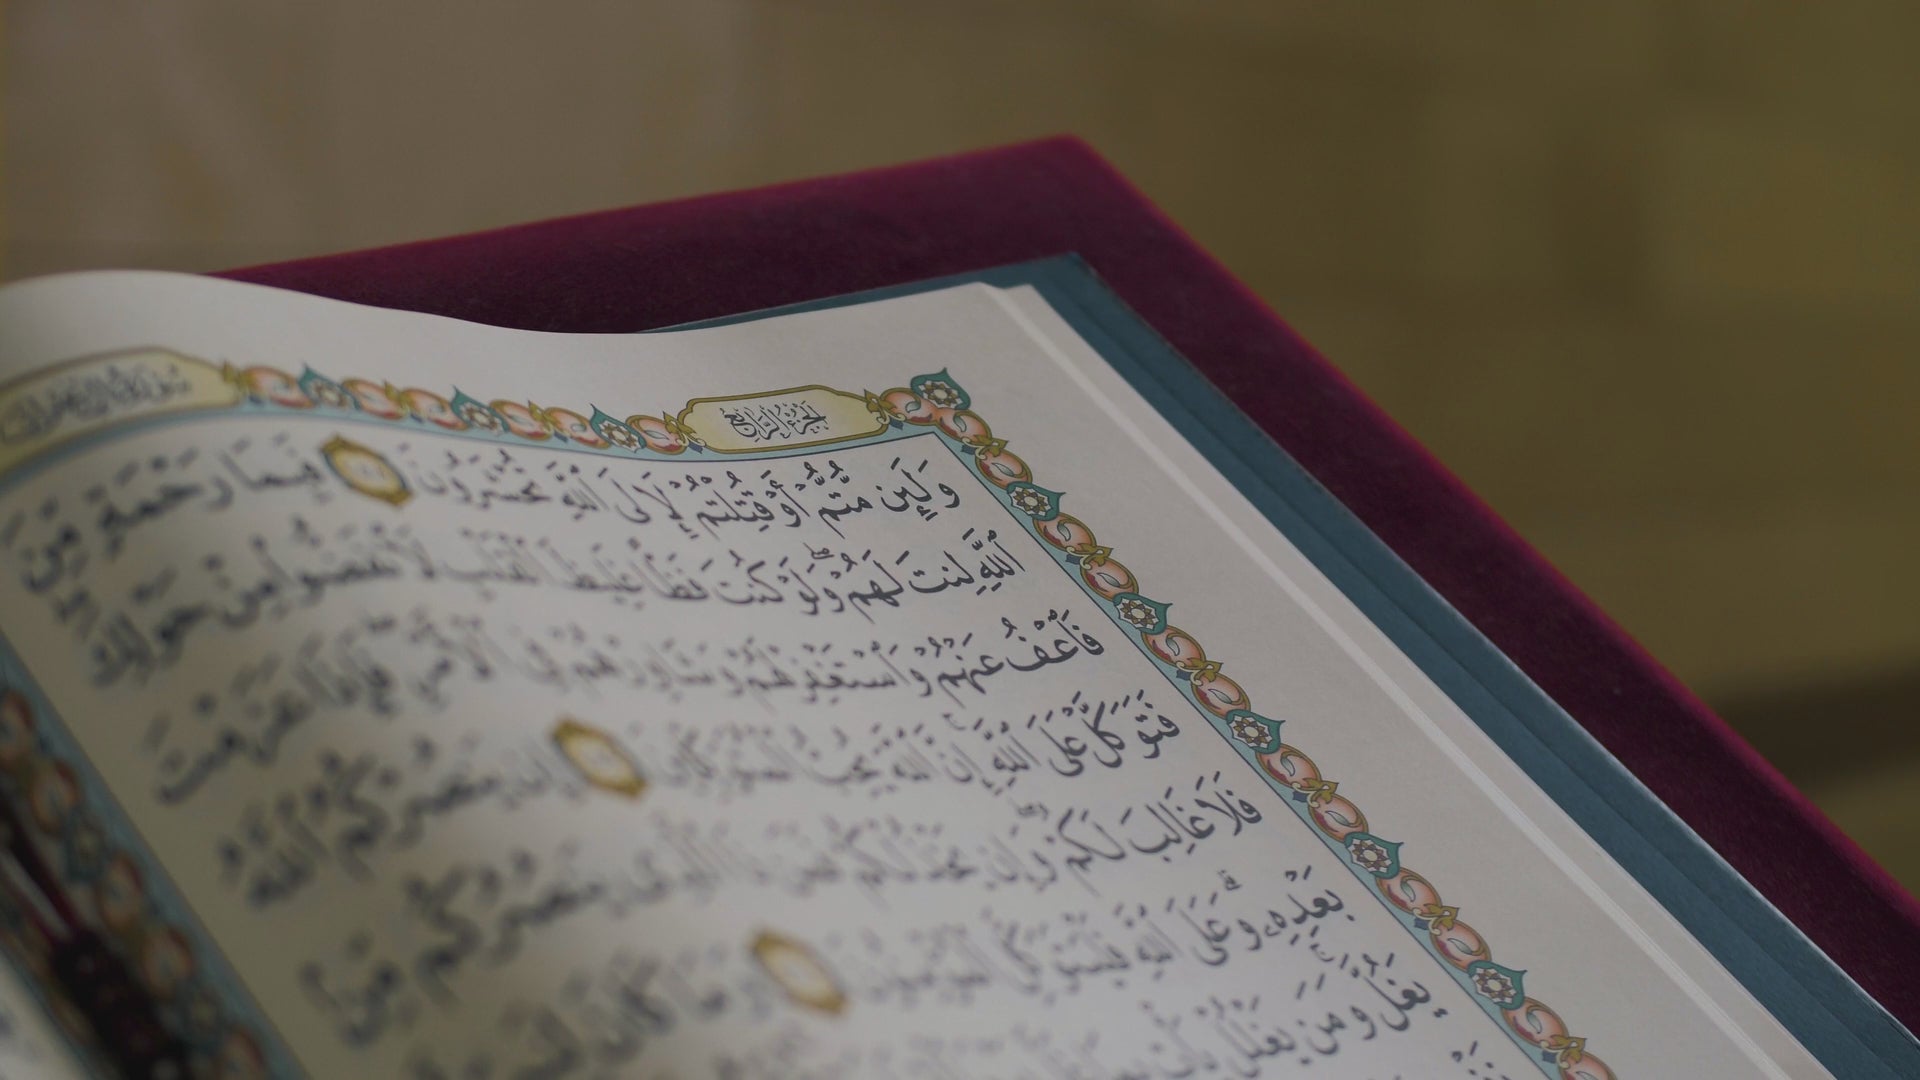 سورة آل عمران
الجزء الرابع
وَلَئِن مُّتُّمْ أَوْ قُتِلْتُمْ لَإِلَى ٱللَّهِ تُحْشَرُونَ فَبِمَا رَحْمَةٍ مِّنَ
ٱللَّهِ لِنتَ لَهُمْ وَلَوْ كُنتَ فَظًّا غَلِيظَ ٱلْقَلْبِ لَٱنفَضُّوا۟ مِنْ حَوْلِكَ
فَٱعْفُ عَنْهُمْ وَٱسْتَغْفِرْ لَهُمْ وَشَاوِرْهُمْ فِى ٱلْأَمْرِ فَإِذَا عَزَمْتَ
فَتَوَكَّلْ عَلَى ٱللَّهِ إِنَّ ٱللَّهَ يُحِبُّ ٱلْمُتَوَكِّلِينَ إِن يَنصُرْكُمُ ٱللَّهُ
فَلَا غَالِبَ لَكُمْ وَإِن يَخْذُلْكُمْ فَمَن ذَا ٱلَّذِى يَنصُرُكُم مِّنۢ
بَعْدِهِۦ وَعَلَى ٱللَّهِ فَلْيَتَوَكَّلِ ٱلْمُؤْمِنُونَ وَمَا كَانَ لِنَبِىٍّ
يَغُلَّ وَمَن يَغْلُلْ يَأْتِ